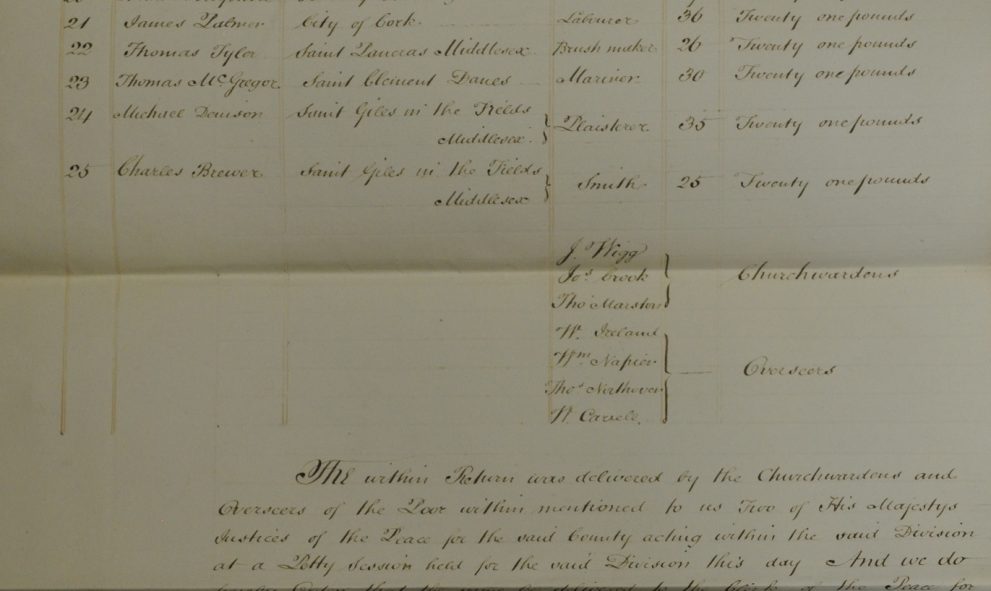 21 James Palmer City of Cork Labourer 36 Twenty one pounds
22 Thomas Tyler Saint Pancras Middlesex Brush maker 26 Twenty one pounds
23 Thomas McGregor Saint Clement Danes Mariner 30 Twenty one pounds
24 Michael Denison Saint Giles in the Fields
Middlesex Plaisterer 35 Twenty one pounds
25 Charles Brewer Saint Giles in the Fields
Middlesex Smith 25 Twenty one pounds
Js Wigg
Jos. Crook Churchwardens
Thos Marston
W. Ireland
Wm Napier
Overseers
Thos Northover
W.
The within Return was delivered by the Churchwardens and
Overseers of the Poor within mentioned to us Two of His Majestys
Justices of the Peace for the said County acting within the said Division
at a Petty Session held for the said Division this day And we do
delivered to the Clerk of the Peace for